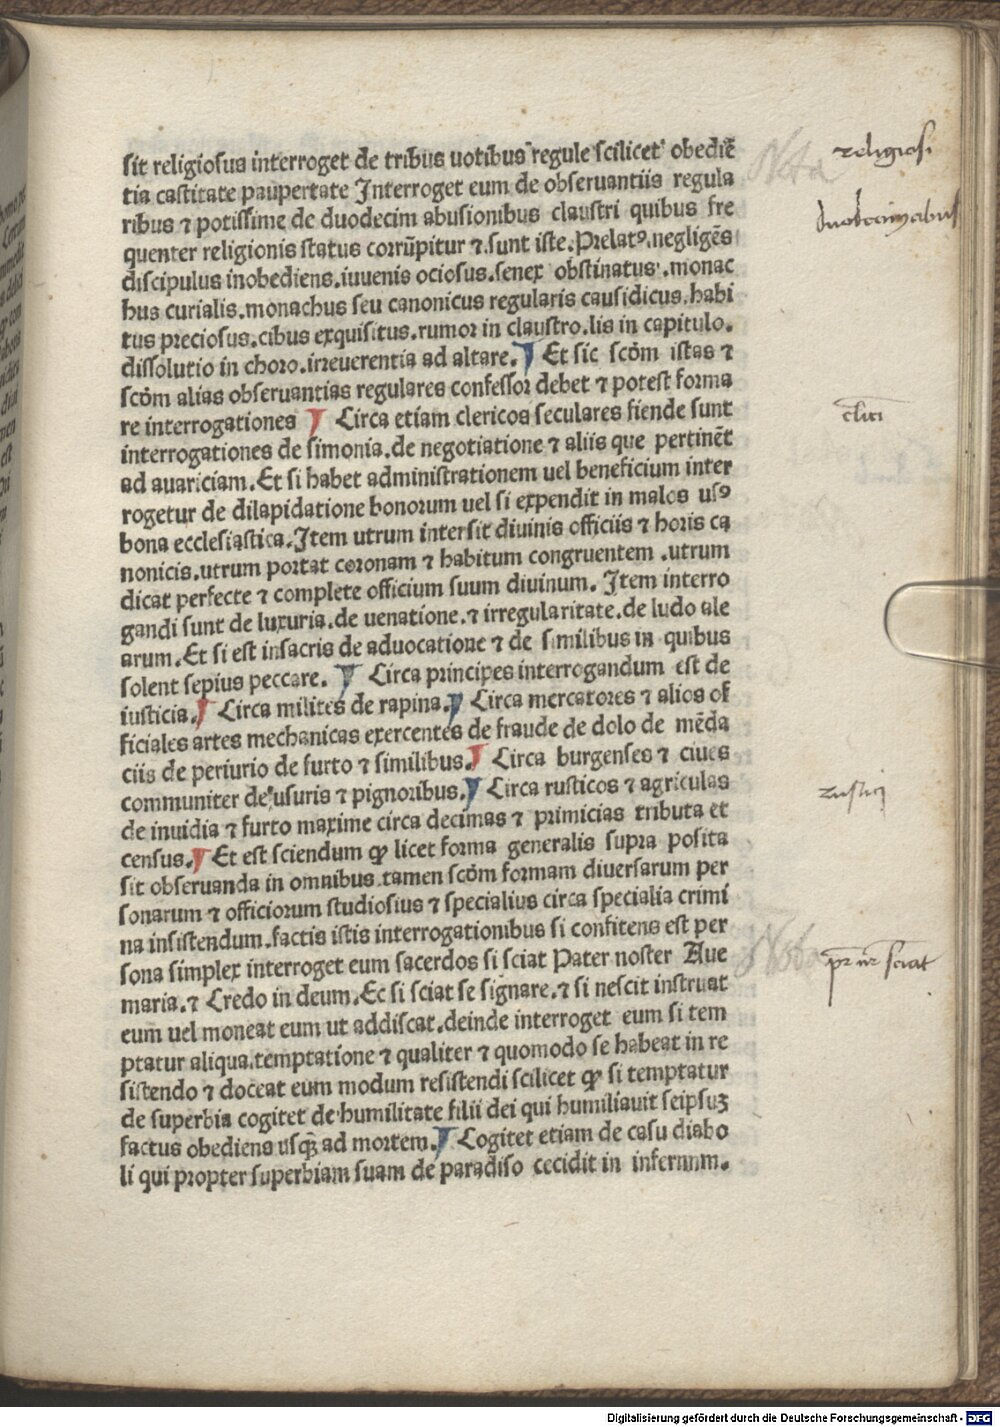 sit religiosus interroget de tribus uotibus regule scilicet obediē
tia castitate paupertate Interroget eum de obseruantiis regula
ribus ⁊ potissime de duodecim abusionibus claustri quibus fre
quenter religionis status corrūpitur ⁊ sunt iste. Prelatꝰ. negligēs
discipulus inobediens. iuuenis ociosus. senex obstinatus. monac
hus curialis. monachus seu canonicus regularis causidicus. habi
tus preciosus. cibus exquisitus. rumor in claustro. lis in capitulo.
dissolutio in choro. irreuerentia ad altare. ¶ Et sic scōm istas ⁊
scōm alias obseruantias regulares confessor debet ⁊ potest forma
re interrogationes ¶ Circa etiam clericos seculares fiende sunt
interrogationes de simonia. de negotiatione ⁊ aliis que pertinēt
ad auariciam. Et si habet administrationem uel beneficium inter
rogetur de dilapidatione bonorum uel si expendit in malos usꝰ
bona ecclesiastica. Item utrum intersit diuinis officiis ⁊ horis ca
nonicis. utrum portat coronam ⁊ habitum congruentem . utrum
dicat perfecte ⁊ complete officium suum diuinum. Item interro
gandi sunt de luxuria. de uenatione. ⁊ irregularitate. de ludo ale
arum. Et si est insacris de aduocatione ⁊ de similibus in quibus
solent sepius peccare. ¶ Circa principes interrogandum est de
iusticia. ¶ Circa milites de rapina. ¶ Circa mercatores ⁊ alios of
ficiales artes mechanicas exercentes de fraude de dolo de mēda
ciis de periurio de furto ⁊ similibus. ¶ Circa burgenses ⁊ ciues
communiter de usuris ⁊ pignoribus. ¶ Circa rusticos ⁊ agriculas
de inuidia ⁊ furto maxime circa decimas ⁊ primicias tributa et
census. ¶ Et est sciendum ꝙ licet forma generalis supra posita
sit obseruanda in omnibus tamen scōm formam diuersarum per
sonarum ⁊ officiorum studiosius ⁊ specialius circa specialia crimi
na insistendum. factis istis interrogationibus si confitens est per
sona simplex interroget eum sacerdos si sciat Pater noster Aue
maria. ⁊ Credo in deum. Ec si sciat se signare. ⁊ si nescit instruat
eum uel moneat eum ut addiscat. deinde interroget eum si tem
ptatur aliqua temptatione ⁊ qualiter ⁊ quomodo se habeat in re
sistendo ⁊ doceat eum modum resistendi scilicet ꝙ si temptatur
de superbia cogitet de humilitate filii dei qui humiliauit seipsuꝫ
factus obediens usqꝫ ad mortem. ¶ Cogitet etiam de casu diabo
li qui propter superbiam suam de paradiso cecidit in infernum.
Nota
religiosi
clīci
rustici
Nota
pr nr sciat
Digitalisierung gefördert durch die Deutsche Forschungsgemeinschaft - DFG